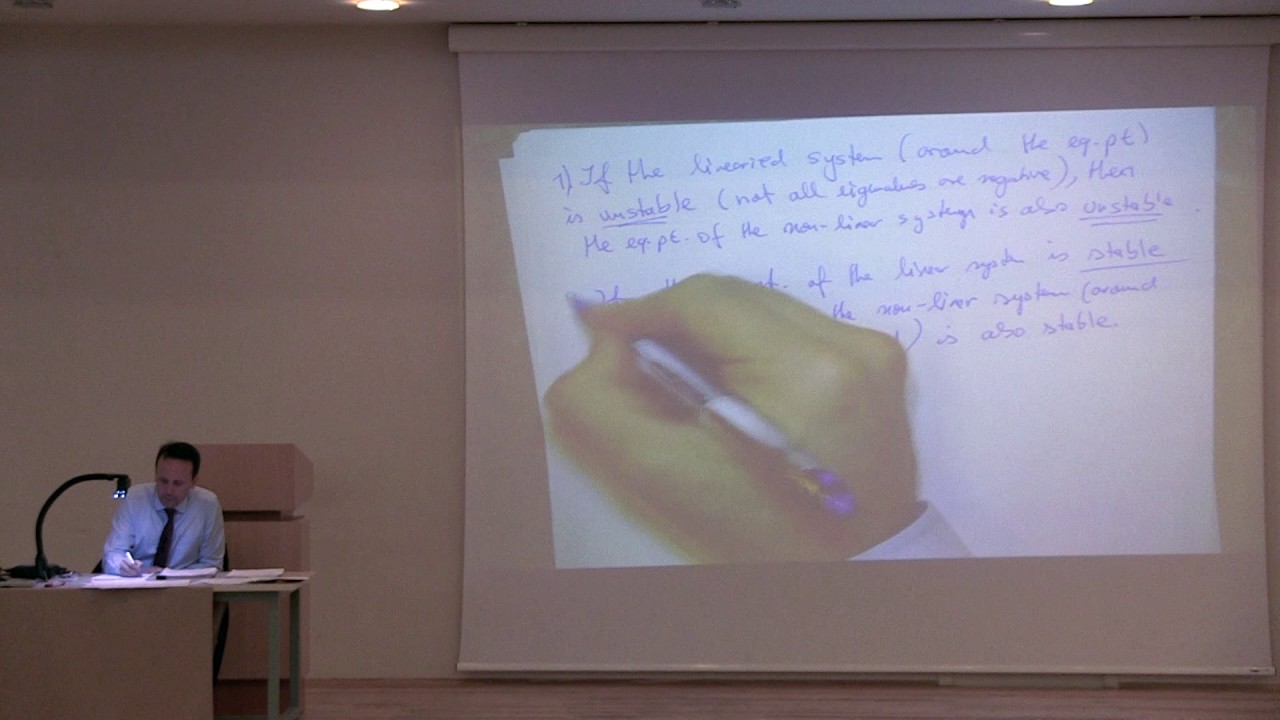 1) If the linearized system (around the eq.pt)
is unstable (not all eigenvalues are negative), then
the eq.pt. of the non-linear system is also unstable.
If the t. of the linear system is stable
the non-linear system (around
) is also stable.